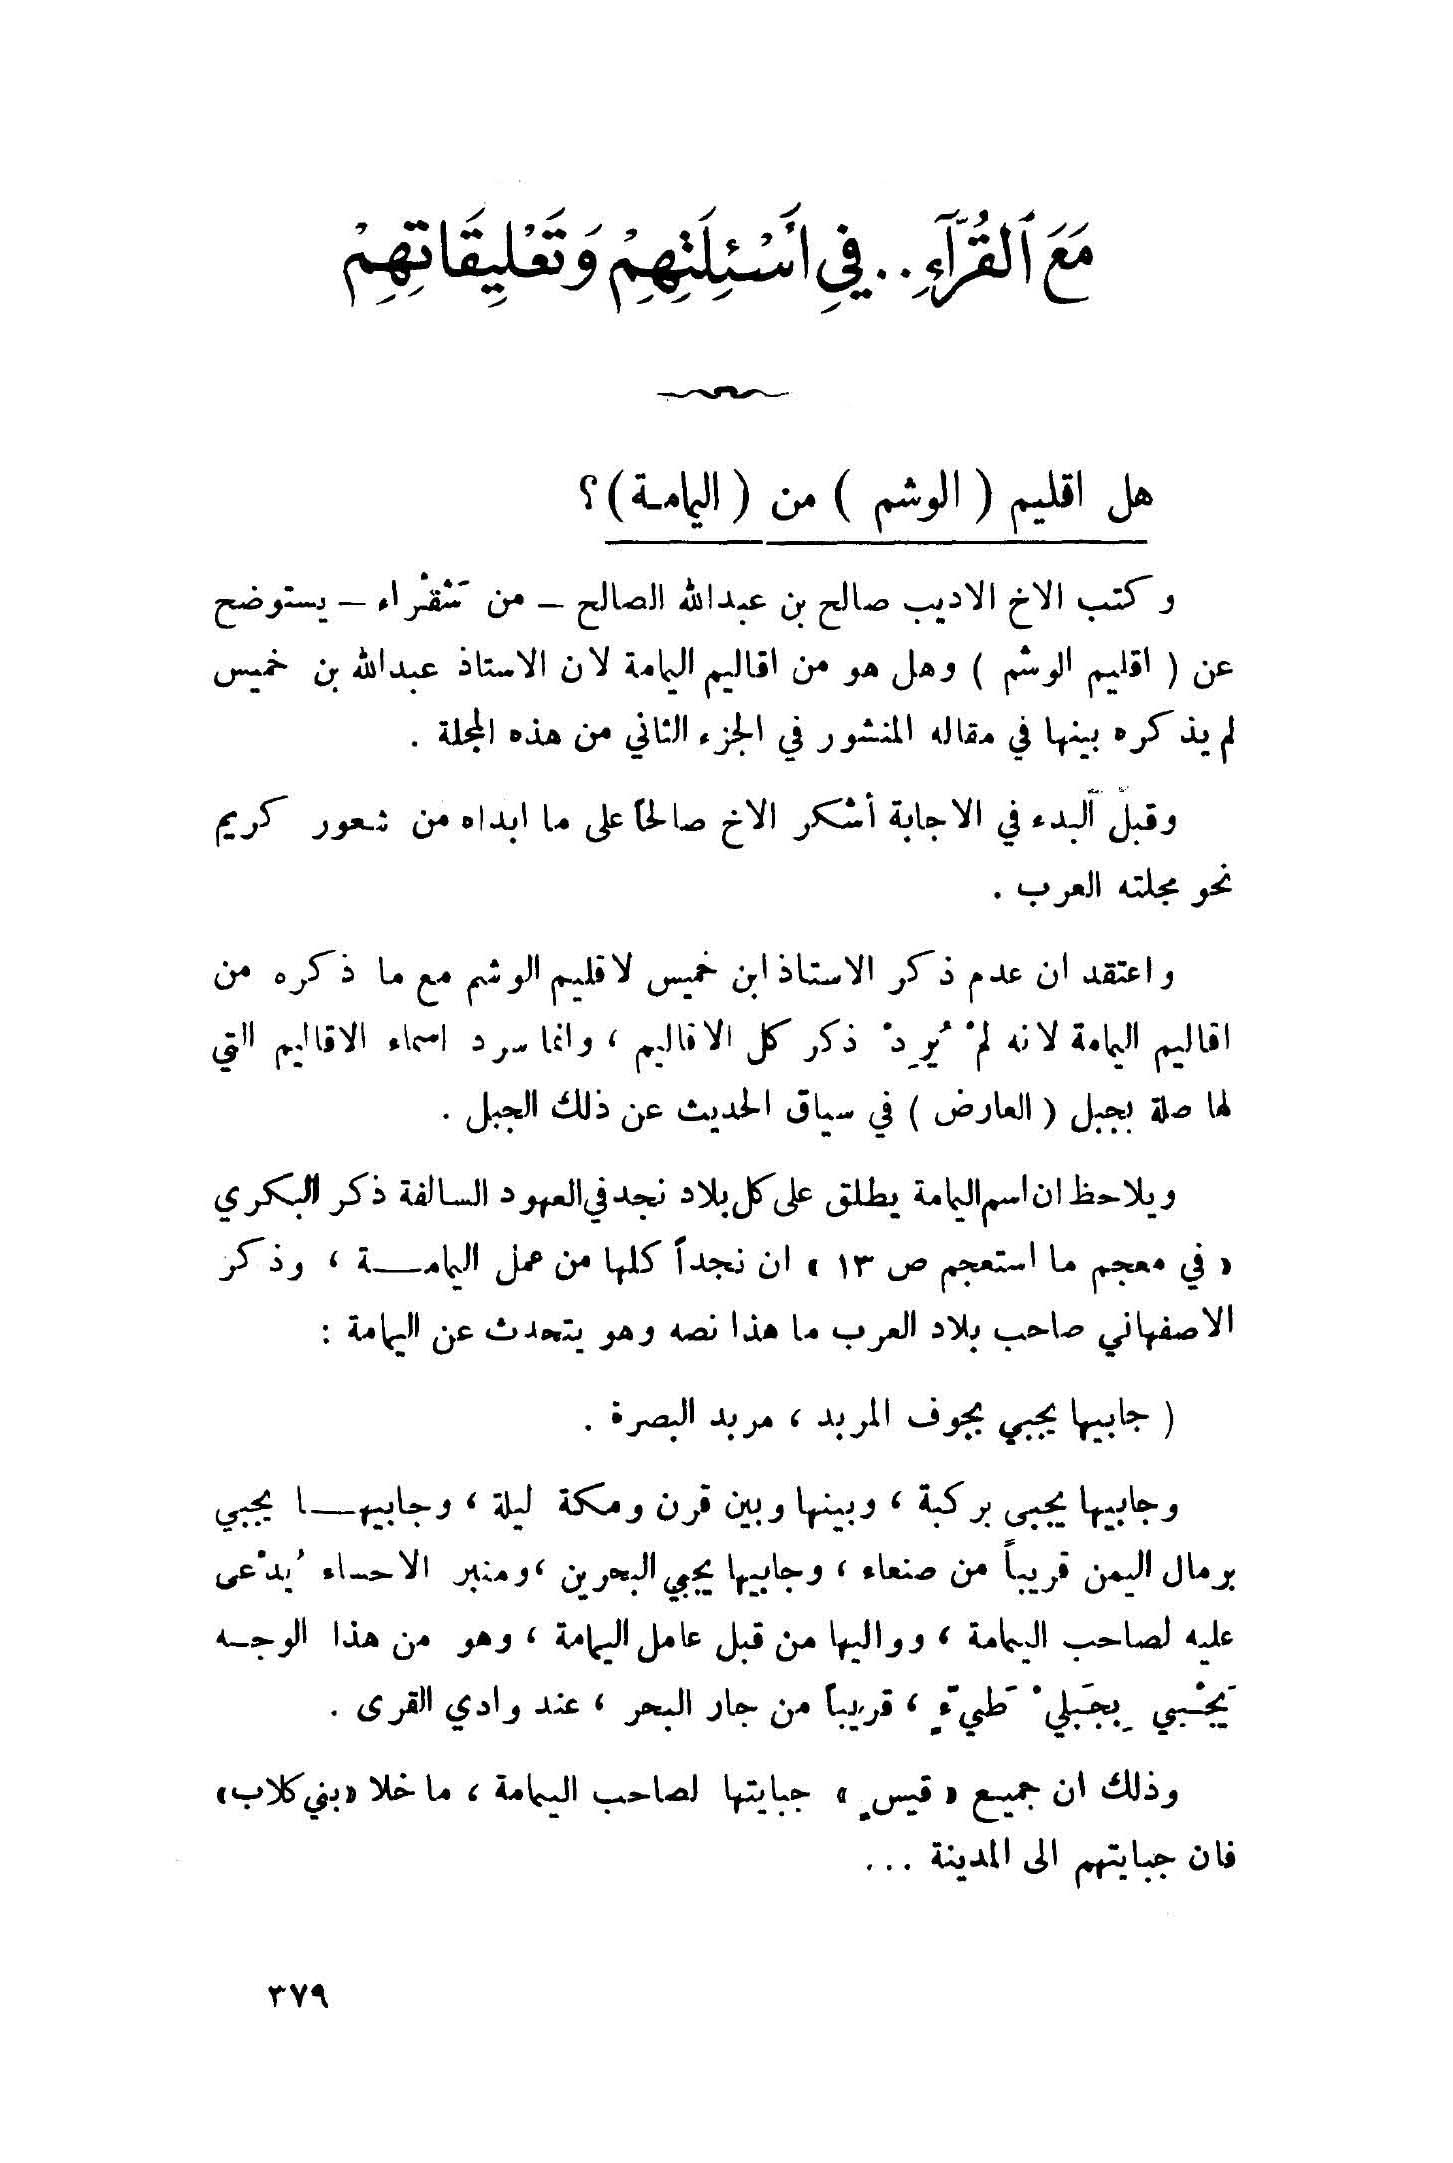 مَعَ ٱلقُرَّآءِ.. فِي اَسْئِلَتِهِمْ وَتَعْلِيقَاتِهِمْ
هل اقليم ( الوشم ) من ( اليمامـة )؟
وكتب الاخ الاديب صالح بن عبدالله الصالح – من شَقْراء – يستوضح
عن ( اقليم الوشم ) وهل هو من اقاليم اليمامة لان الاستاذ عبدالله بن خميس
لم يذكره بينها في مقاله المنشور في الجزء الثاني من هذه المجلة .
وقبل البدء في الاجابة أشكر الاخ صالحاً على ما ابداه من شعور كريم
نحو مجلته العرب .
واعتقد ان عدم ذكر الاستاذ ابن خميس لاقليم الوشم مع ما ذكره من
اقاليم اليمامة لانه لمْ يُرِدْ ذكر كل الاقاليم ، وانما سرد اسماء الاقاليم التي
لها صلة بجبل ( العارض ) في سياق الحديث عن ذلك الجبل .
ويلاحظ ان اسم اليمامة يطلق على كل بلاد نجد في العهود السالفة ذكر البكري
« في معجم ما استعجم ص ١٣ » ان نجداً كلها من عمل اليمامــة ، وذكر
الاصفهاني صاحب بلاد العرب ما هذا نصه وهو يتحدث عن اليمامة :
( جابيها يجبي بجوف المربد ، مربد البصرة .
وجابيها يجبى بركبة ، وبينها وبين قرن ومكة ليلة ، وجابيهــا يجبي
برمال اليمن قريباً من صنعاء ، وجابيها يجبي البحرين ، ومنبر الاحساء يُدْعى
عليه لصاحب اليمامة ، وواليها من قبل عامل اليمامة ، وهو من هذا الوجـه
يَجْبي بِجَبلي طَيءٍّ ، قريباً من جار البحر ، عند وادي القرى .
وذلك ان جميع « قيسٍ » جبايتها لصاحب اليمامة ، ما خلا «بني كلاب»
فان جبايتهم الى المدينة ...
٣٧٩